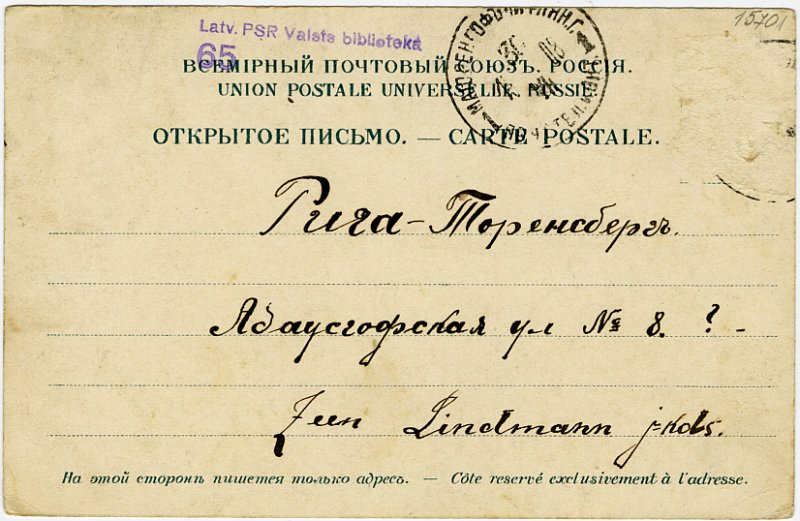 15701
Latv. PSR Valsts bibliotēka
65
ВСЕМІРНЫЙ ПОЧТОВЫЙ СОЮЗЪ. РОССІЯ.
UNION POSTALE UNIVERSELLE. RUSSIE.
ОТКРЫТОЕ ПИСЬМО. — CARTE POSTALE.
Рига-Торенсбергъ.
Абаусгофская ул № 8. ? -
Lindtmann j-kds.
На этой сторонѣ пишется только адресъ. — Côte reservé exclusivement à l'adresse.